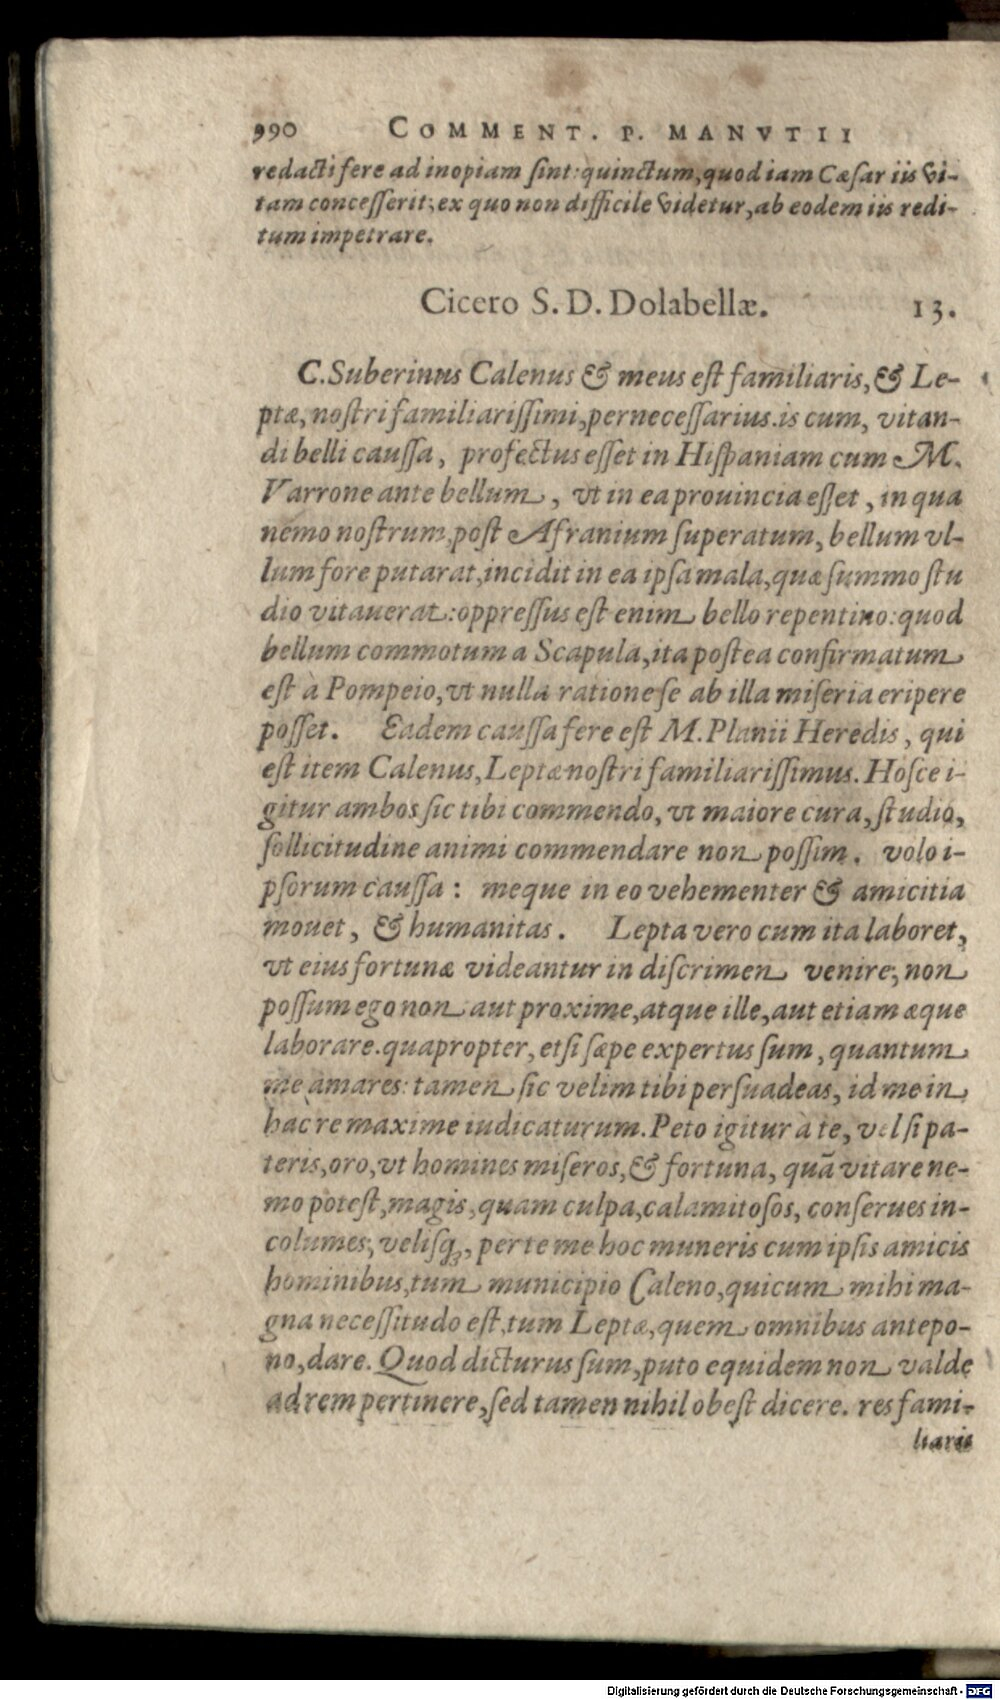 990 COMMENT. P. MANVTII
redacti fere ad inopiam ſint: quinctum, quod iam Cæſar iis vi-
tam conceſſerit; ex quo non difficile videtur, ab eodem iis redi-
tum impetrare.
Cicero S. D. Dolabellæ. 13.
C. Suberinus Calenus & meus eſt familiaris, & Le-
ptæ, noſtri familiariſſimi, perneceſſarius. is cum, vitan-
di belli cauſſa, profectus eſſet in Hiſpaniam cum M.
Varrone ante bellum, vt in ea prouincia eſſet, in qua
nemo noſtrum, poſt Afranium ſuperatum, bellum vl-
lum fore putarat, incidit in ea ipſa mala, quæ ſummo ſtu
dio vitauerat: oppreſſus eſt enim bello repentino: quod
bellum commotum a Scapula, ita poſtea confirmatum
eſt à Pompeio, vt nulla ratione ſe ab illa miſeria eripere
poſſet. Eadem cauſſa fere eſt M. Planii Heredis, qui
eſt item Calenus, Leptæ noſtri familiariſſimus. Hoſce i-
gitur ambos ſic tibi commendo, vt maiore cura, ſtudio,
ſollicitudine animi commendare non poſſim. volo i-
pſorum cauſſa: meque in eo vehementer & amicitia
mouet, & humanitas. Lepta vero cum ita laboret,
vt eius fortunæ videantur in diſcrimen venire; non
poſſum ego non aut proxime, atque ille, aut etiam æque
laborare. quapropter, etſi ſæpe expertus ſum, quantum
me amares: tamen ſic velim tibi perſuadeas, id me in
hac re maxime iudicaturum. Peto igitur à te, vel ſi pa-
teris, oro, vt homines miſeros, & fortuna, quā vitare ne-
mo poteſt, magis, quam culpa, calamitoſos, conſerues in-
columes; veliſq́;, per te me hoc muneris cum ipſis amicis
hominibus, tum municipio Caleno, quicum mihi ma-
gna neceſſitudo eſt, tum Leptæ, quem omnibus antepo-
no, dare. Quod dicturus ſum, puto equidem non valde
ad rem pertinere, ſed tamen nihil obeſt dicere. res fami-
liaris
Digitalisierung gefördert durch die Deutsche Forschungsgemeinschaft - DFG